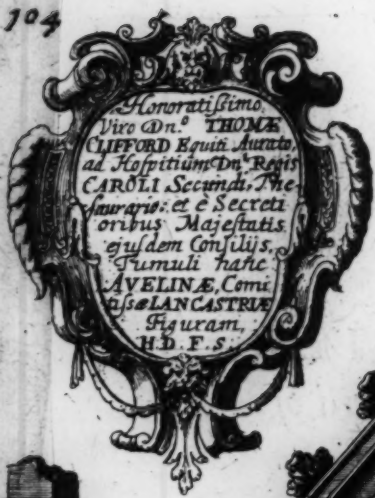 104
Honoratißimo,
Viro Dn.º THOMÆ
CLIFFORD Equiti Aurato,
ad Hospitium Dn.ⁱ Regis
CAROLI Secundi, The-
saurario: et è Secreti
oribus Majestatis
ejusdem Consilijs,
Tumuli hanc
AVELINÆ, Comi
tissæ LANCASTRIÆ
Figuram,
H. D. F. S.